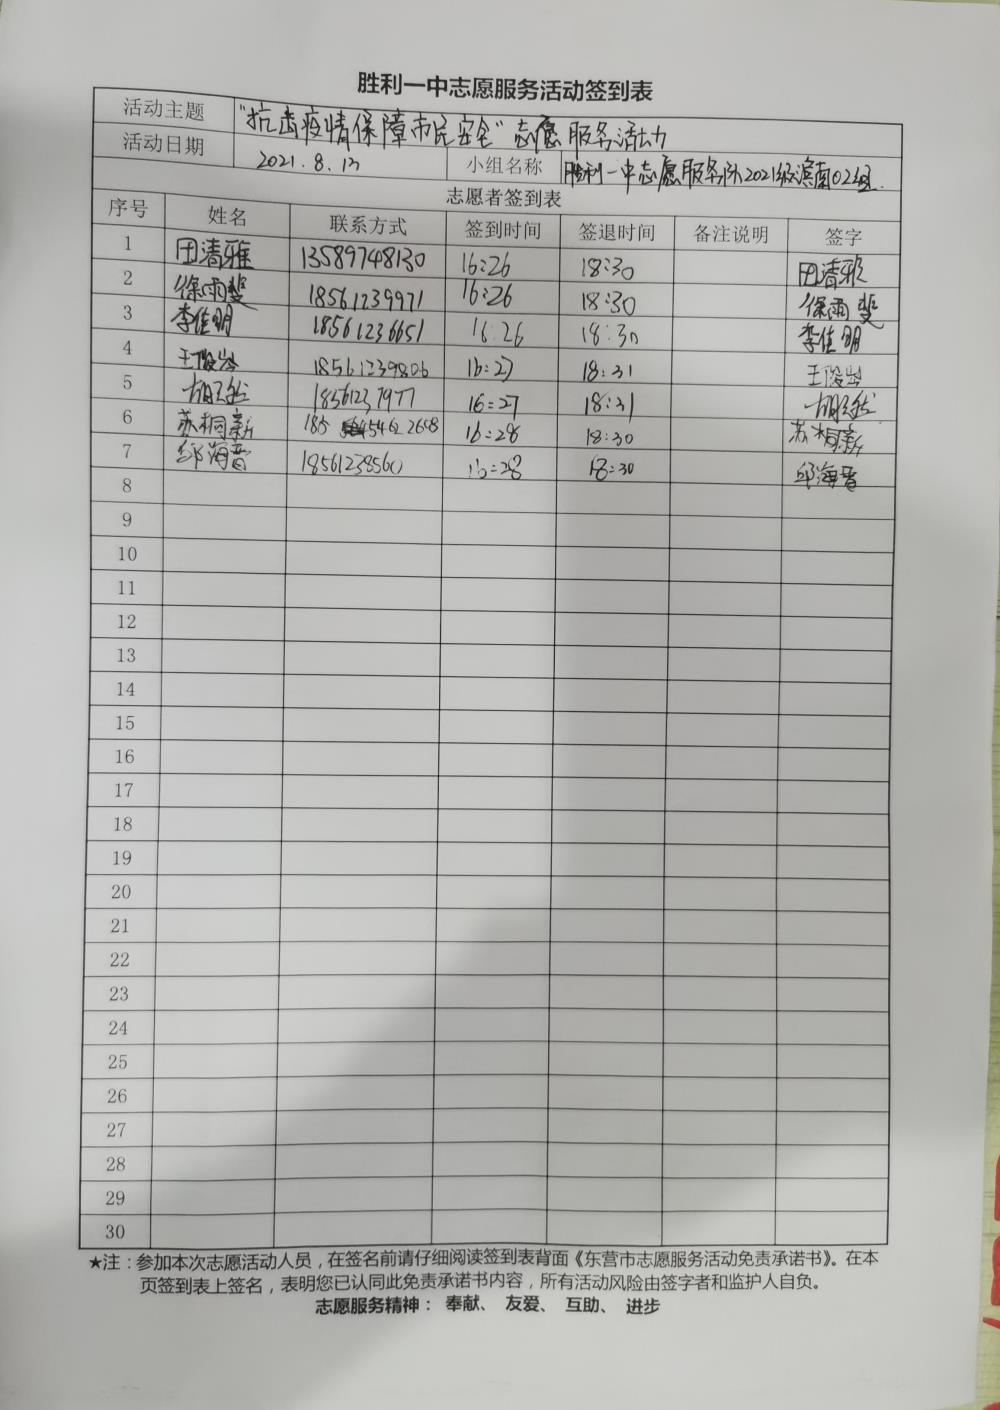 胜利一中志愿服务活动签到表
活动主题 "抗击疫情保障市民安全"志愿服务活动
活动日期 2021.8.13 小组名称 胜利一中志愿服务队2021级滨南02组
志愿者签到表
序号 姓名 联系方式 签到时间 签退时间 备注说明 签字
1 田清雅 13589748130 16:26 18:30 田清雅
2 徐雨斐 18561239971 16:26 18:30 徐雨斐
3 李佳明 18561236651 16:26 18:30 李佳明
4 王俊岑 18561239806 16:27 18:31 王俊岑
5 16:27 18:31
6 苏桐新 16:28 18:30 苏桐新
7 邱海晋 18561238560 16:28 18:30 邱海晋
8
9
10
11
12
13
14
15
16
17
18
19
20
21
22
23
24
25
26
27
28
29
30
★注：参加本次志愿活动人员，在签名前请仔细阅读签到表背面《东营市志愿服务活动免责承诺书》。在本
页签到表上签名，表明您已认同此免责承诺书内容，所有活动风险由签字者和监护人自负。
志愿服务精神： 奉献、 友爱、 互助、 进步